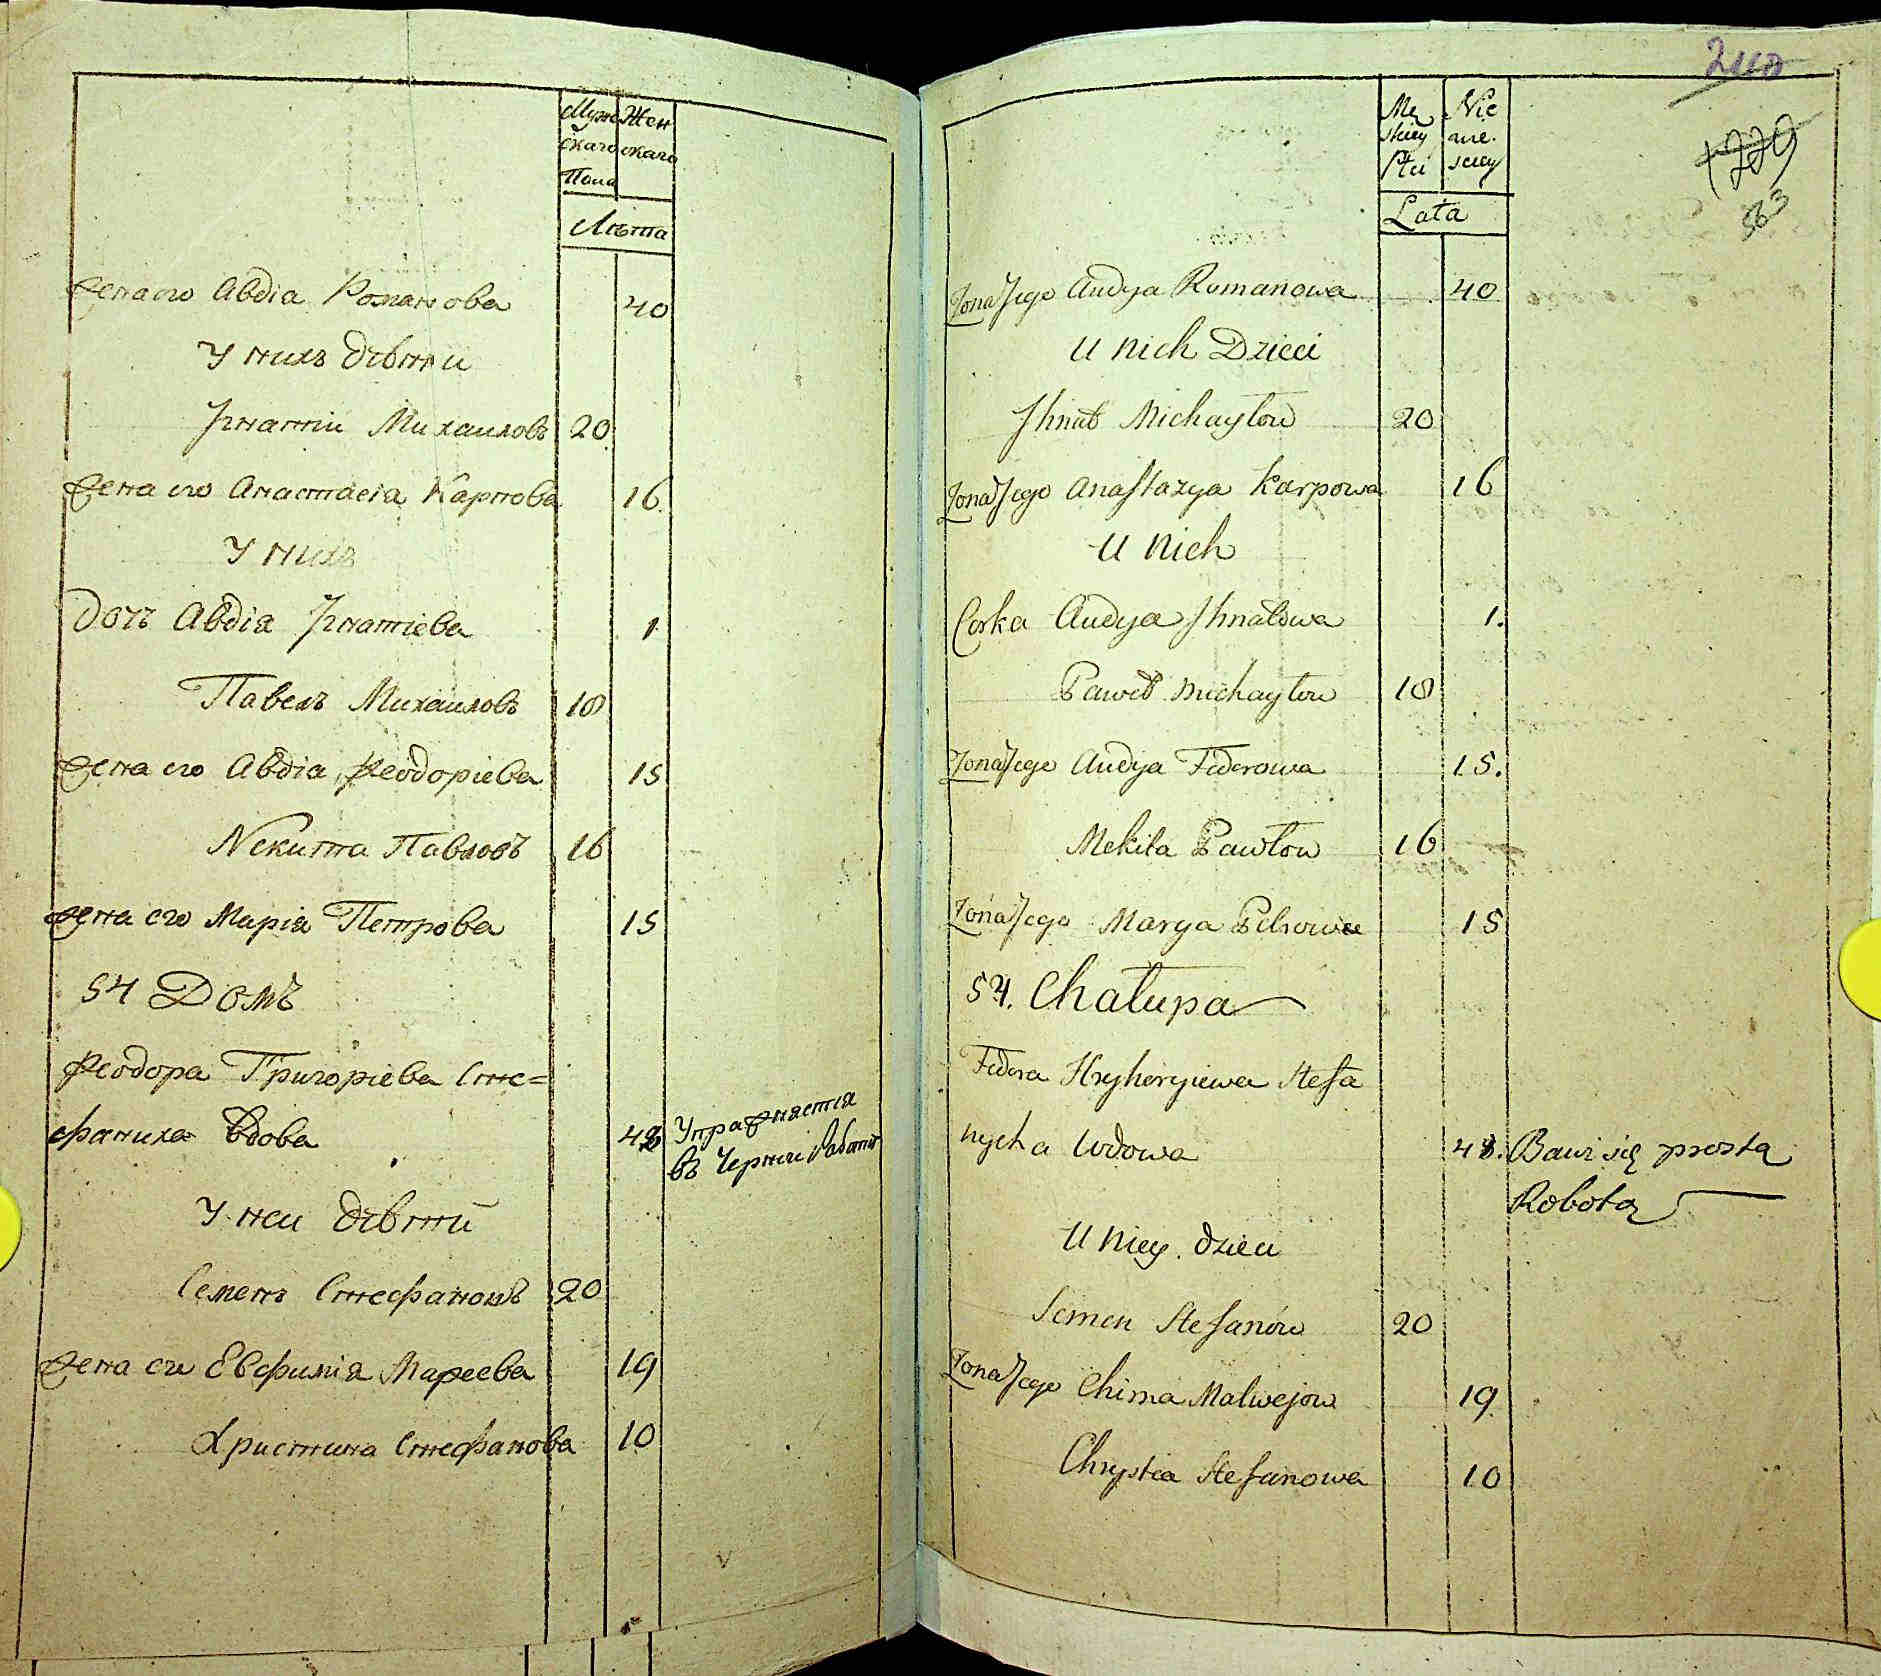 Муж Жен
скаго скаго
Пола
Лѣта
Жена его Авдіа Романова 40
У нихъ дѣти
Игнатіи Михаиловъ 20
Жена его Анастасіа Карпова 16
У нихъ
Дочь Авдіа Игнатіева 1
Павелъ Михаиловъ 18
Жена его Авдіа Феодоріева 15
Некита Павловъ 16
Жена его Маріа Петрова 15
54 Домъ
Феодора Григоріева Сте=
фаниха Вдова 48 Упражняетіа
въ Черной Работѣ
У неи дѣти
Семенъ Стефановъ 20
Жена его Евфиміа Мафеева 19
Христина Стефанова 10
Mę Nie
skiey wie
Płci sciey
Lata
Żona Jego Audya Romanowa 40
U nich Dzieci
Jhnat Michayłow 20
Żona Jego Anastazya Karpowa 16
U nich
Corka Audya Jhnatowa 1.
Paweł Michayłow 18
Żona Jego Audya Fedorowa 15.
Mekita Pawłow 16
Żona Jego Marya Petrowa 15
54. Chałupa
Fedora Hryhoryiewa Stefa
nycha Wdowa 48. Bawi się prostą
Robotą
U niey dzieci
Semen Stefanów 20
Żona Jego Chima Matwejow 19
Chrystia Stefanowa 10
563